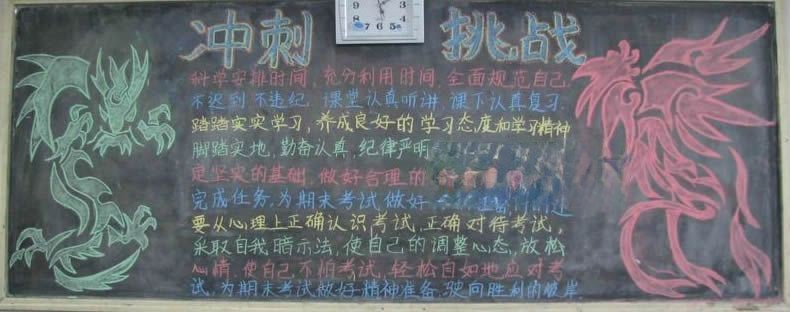 冲刺 挑战
科学安排时间，充分利用时间，全面规范自己
不迟到 不违纪 课堂认真听讲，课下认真复习
踏踏实实学习，养成良好的学习态度和学习精神
脚踏实地，勤奋认真，纪律严明
定坚实的基础，做好合理的
完成任务，为期末考试做好
要从心理上正确认识考试，正确对待考试，
采取自我暗示法，使自己的调整心态，放松
心情，使自己不怕考试，轻松自如地应对考
试，为期末考试做好精神准备，驶向胜利的彼岸